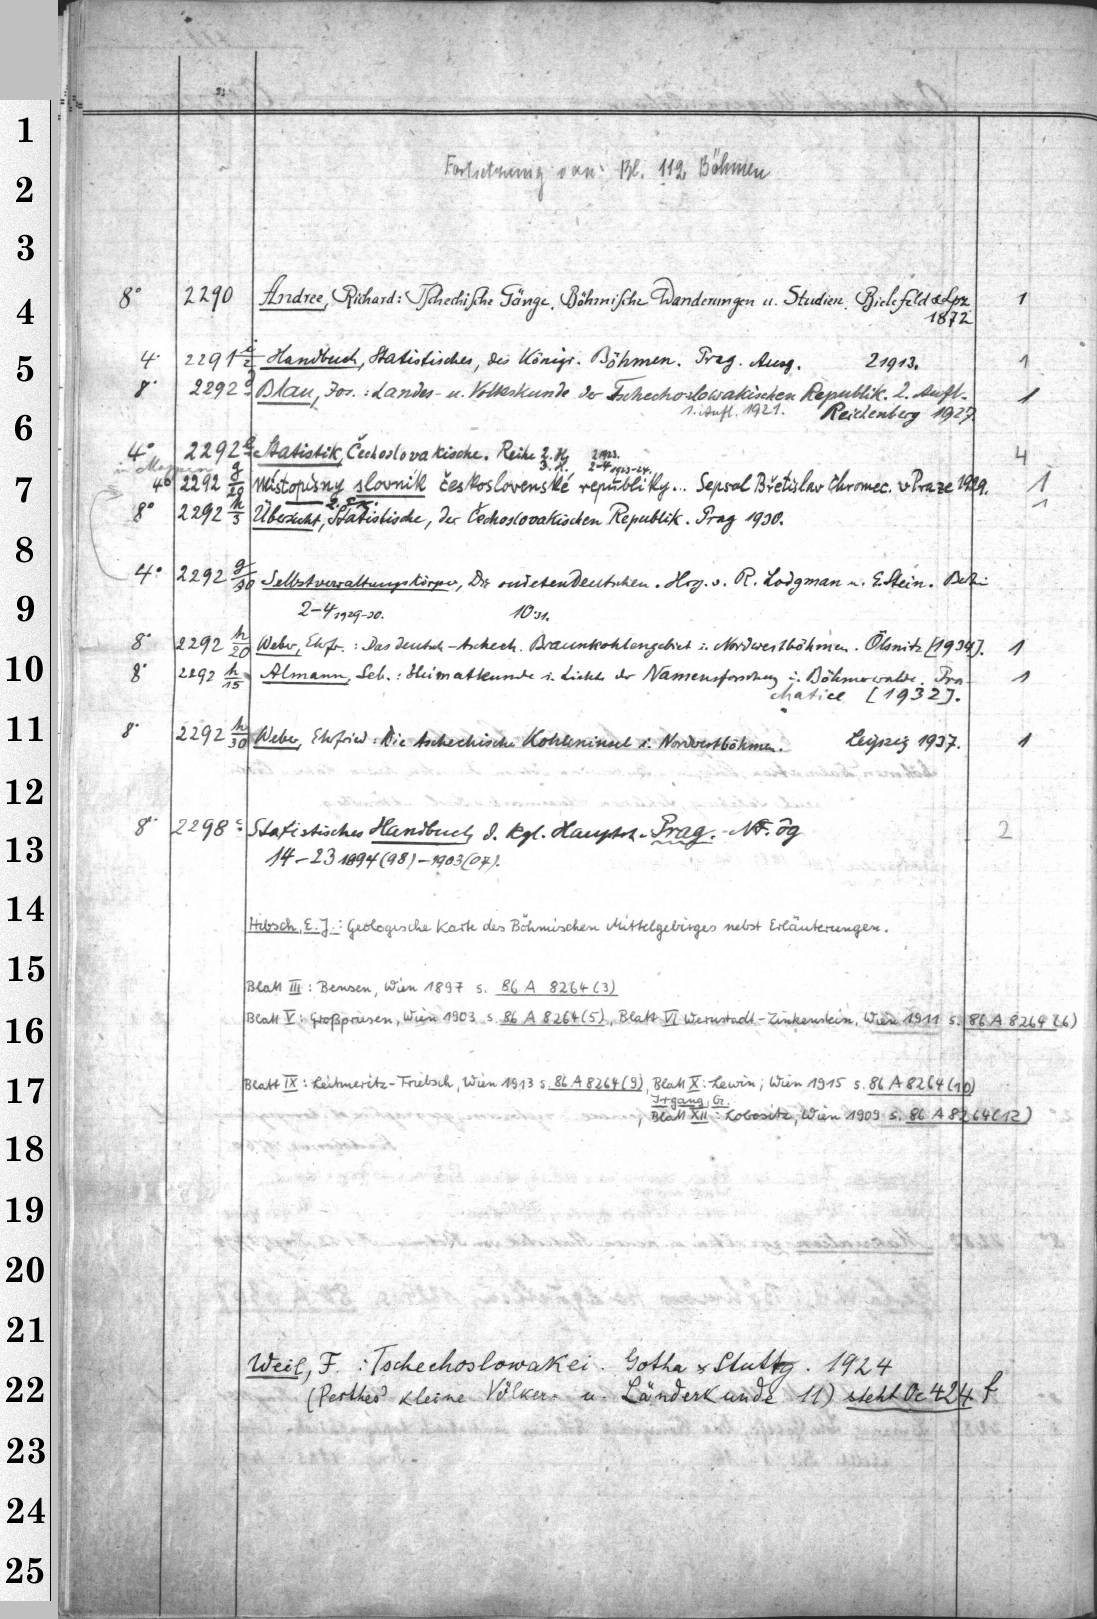 1
2
3
4
5
6
7
8
9
10
11
12
13
14
15
16
17
18
19
20
21
22
23
24
25
Fortsetzung von: Bl. 112 Böhmen
8° 2290 Andree, Richard: Tschechische Gänge. Böhmische Wanderungen u. Studien. Bielefeld & Lpz 1
1872
4° 2291 Handbuch, Statistisches, des Königr. Böhmen. Prag. Ausg. 2 1913. 1
8° 2292 Blau, Jos.: Landes- u. Volkskunde der Tschechoslowakischen Republik. 2. Aufl. 1
1. Aufl. 1921. Reichenberg 1927.
4° 2292 Statistik, Čechoslovakische. Reihe 2. H 2 1923. 4
3. H. 2-4 1923-24.
in Mappen
4° 2292 g/20 Místopisny slovník československé republiky... Sepsal Břetislav Chromec. v Praze 1929. 1
8° 2292 h/3 Übersicht, Statistische, der Čechoslovakischen Republik. Prag 1930. 1
4° 2292 g/30 Selbstverwaltungskörper, Die sudetendeutschen. Hrg. v. R. Lodgman u. E. Stein.
2-4 1929-30. 10 31.
8° 2292 h/20 Weber, Ehrfr.: Das deutsch-tschech. Braunkohlengebiet i. Nordwestböhmen. Ölsnitz [1934]. 1
8° 2292 h/15 Almann, Seb.: Heimatkunde i. Lichte der Namensforschung i. Böhmerwalde. Pra- 1
chatice [1932].
8° 2292 h/30 Weber, Ehrfried: Die tschechische Kohleninsel i. Nordwestböhmen. Leipzig 1937. 1
8° 2298 c Statistisches Handbuch d. kgl. Hauptst. Prag. N.F. 2
14-23 1894(98)-1903(07).
Hibsch, E. J.: Geologische Karte des Böhmischen Mittelgebirges nebst Erläuterungen.
Blatt III: Bensen, Wien 1897 s. 86 A 8264 (3)
Blatt V: Großpriesen, Wien 1903 s. 86 A 8264 (5), Blatt VI Wernstadt-Zinkenstein, Wien 1911 s. 86 A 8264 (6)
Blatt IX: Leitmeritz-Triebsch, Wien 1913 s. 86 A 8264 (9), Blatt X: Lewin, Wien 1915 s. 86 A 8264 (10)
Irgang, G.
, Blatt XII: Lobositz, Wien 1909 s. 86 A 8264 (12)
Weil, F.: Tschechoslowakei. Gotha & Stuttg. 1924
(Perthes' kleine Völker- u. Länderkunde 11) steht Oc 424 f